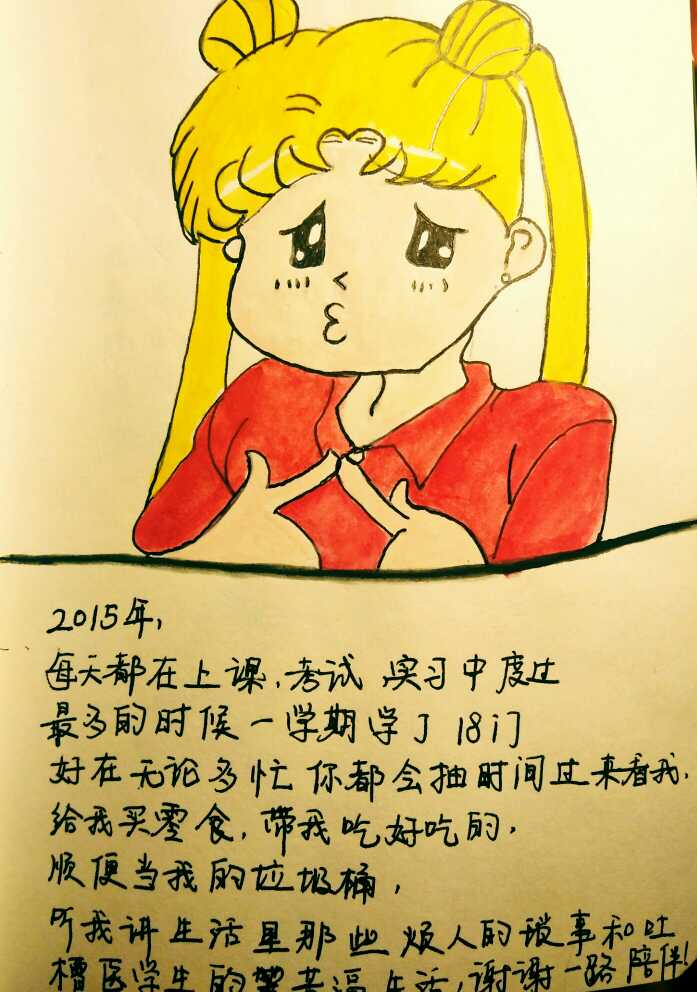 2015年,
每天都在上课、考试、实习中度过
最多的时候一学期学了18门
好在无论多忙你都会抽时间过来看我,
给我买零食,带我吃好吃的,
顺便当我的垃圾桶,
听我讲生活里那些烦人的琐事和吐
槽医学生的苦逼生活,谢谢一路陪伴!